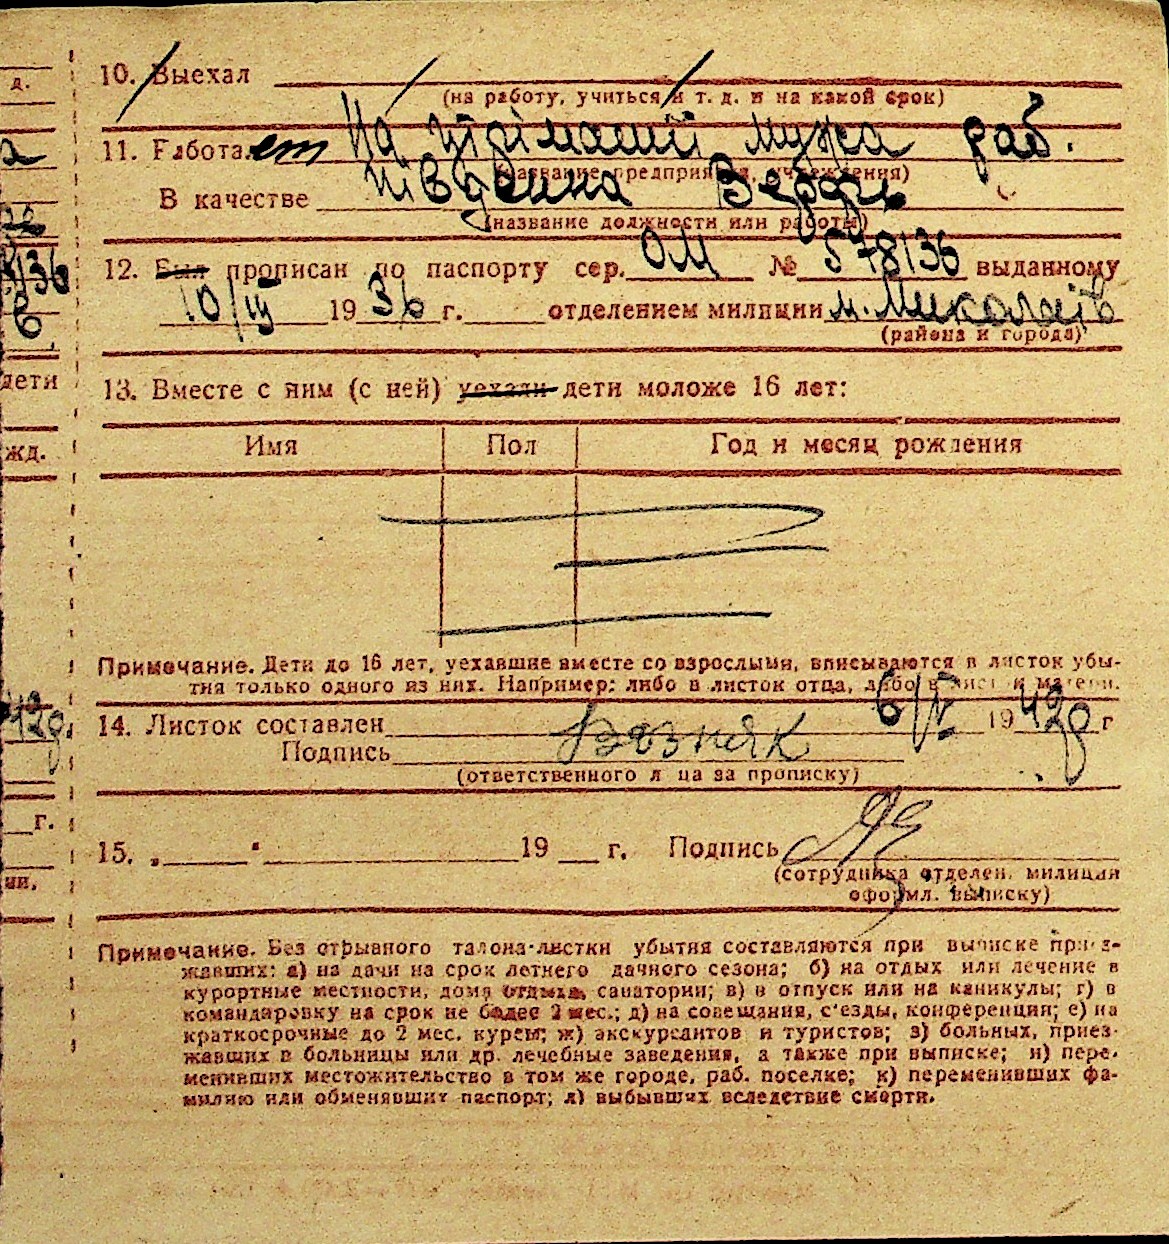 д.
10. Выехал
(на работу, учиться и т. д. и на какой срок)
11. Работает На утриманні мужа раб.
(название предприятия, учреждения)
В качестве Південна Верфь
(название должности или работы)
12. Был прописан по паспорту сер. ОМ № 578136 выданному
10/III 1936 г. отделением милиции м. Миколаїв
(района и города)
дети
13. Вместе с ним (с ней) уехали дети моложе 16 лет:
жд.
Имя Пол Год и месяц рождения
Примечание. Дети до 16 лет, уехавшие вместе со взрослыми, вписываются в листок убы-
тия только одного из них. Например: либо в листок отца, либо в лист к матери.
14. Листок составлен 6/IV 1942р г
Подпись Возняк
(ответственного л ца за прописку)
г.
15. „ “ 19 г. Подпись
(сотрудника отделен. милиции
оформл. выписку)
Примечание. Без отрывного талона-листки убытия составляются при выписке приез-
жавших: а) на дачи на срок летнего дачного сезона; б) на отдых или лечение в
курортные местности, дома отдыха, санатории; в) в отпуск или на каникулы; г) в
командировку на срок не более 2 мес.; д) на совещания, с'езды, конференции; е) на
краткосрочные до 2 мес. курсы; ж) экскурсантов и туристов; з) больных, приез-
жавших в больницы или др. лечебные заведения, а также при выписке; и) пере-
менивших местожительство в том же городе, раб. поселке; к) переменивших фа-
милию или обменявших паспорт; л) выбывших вследствие смерти.